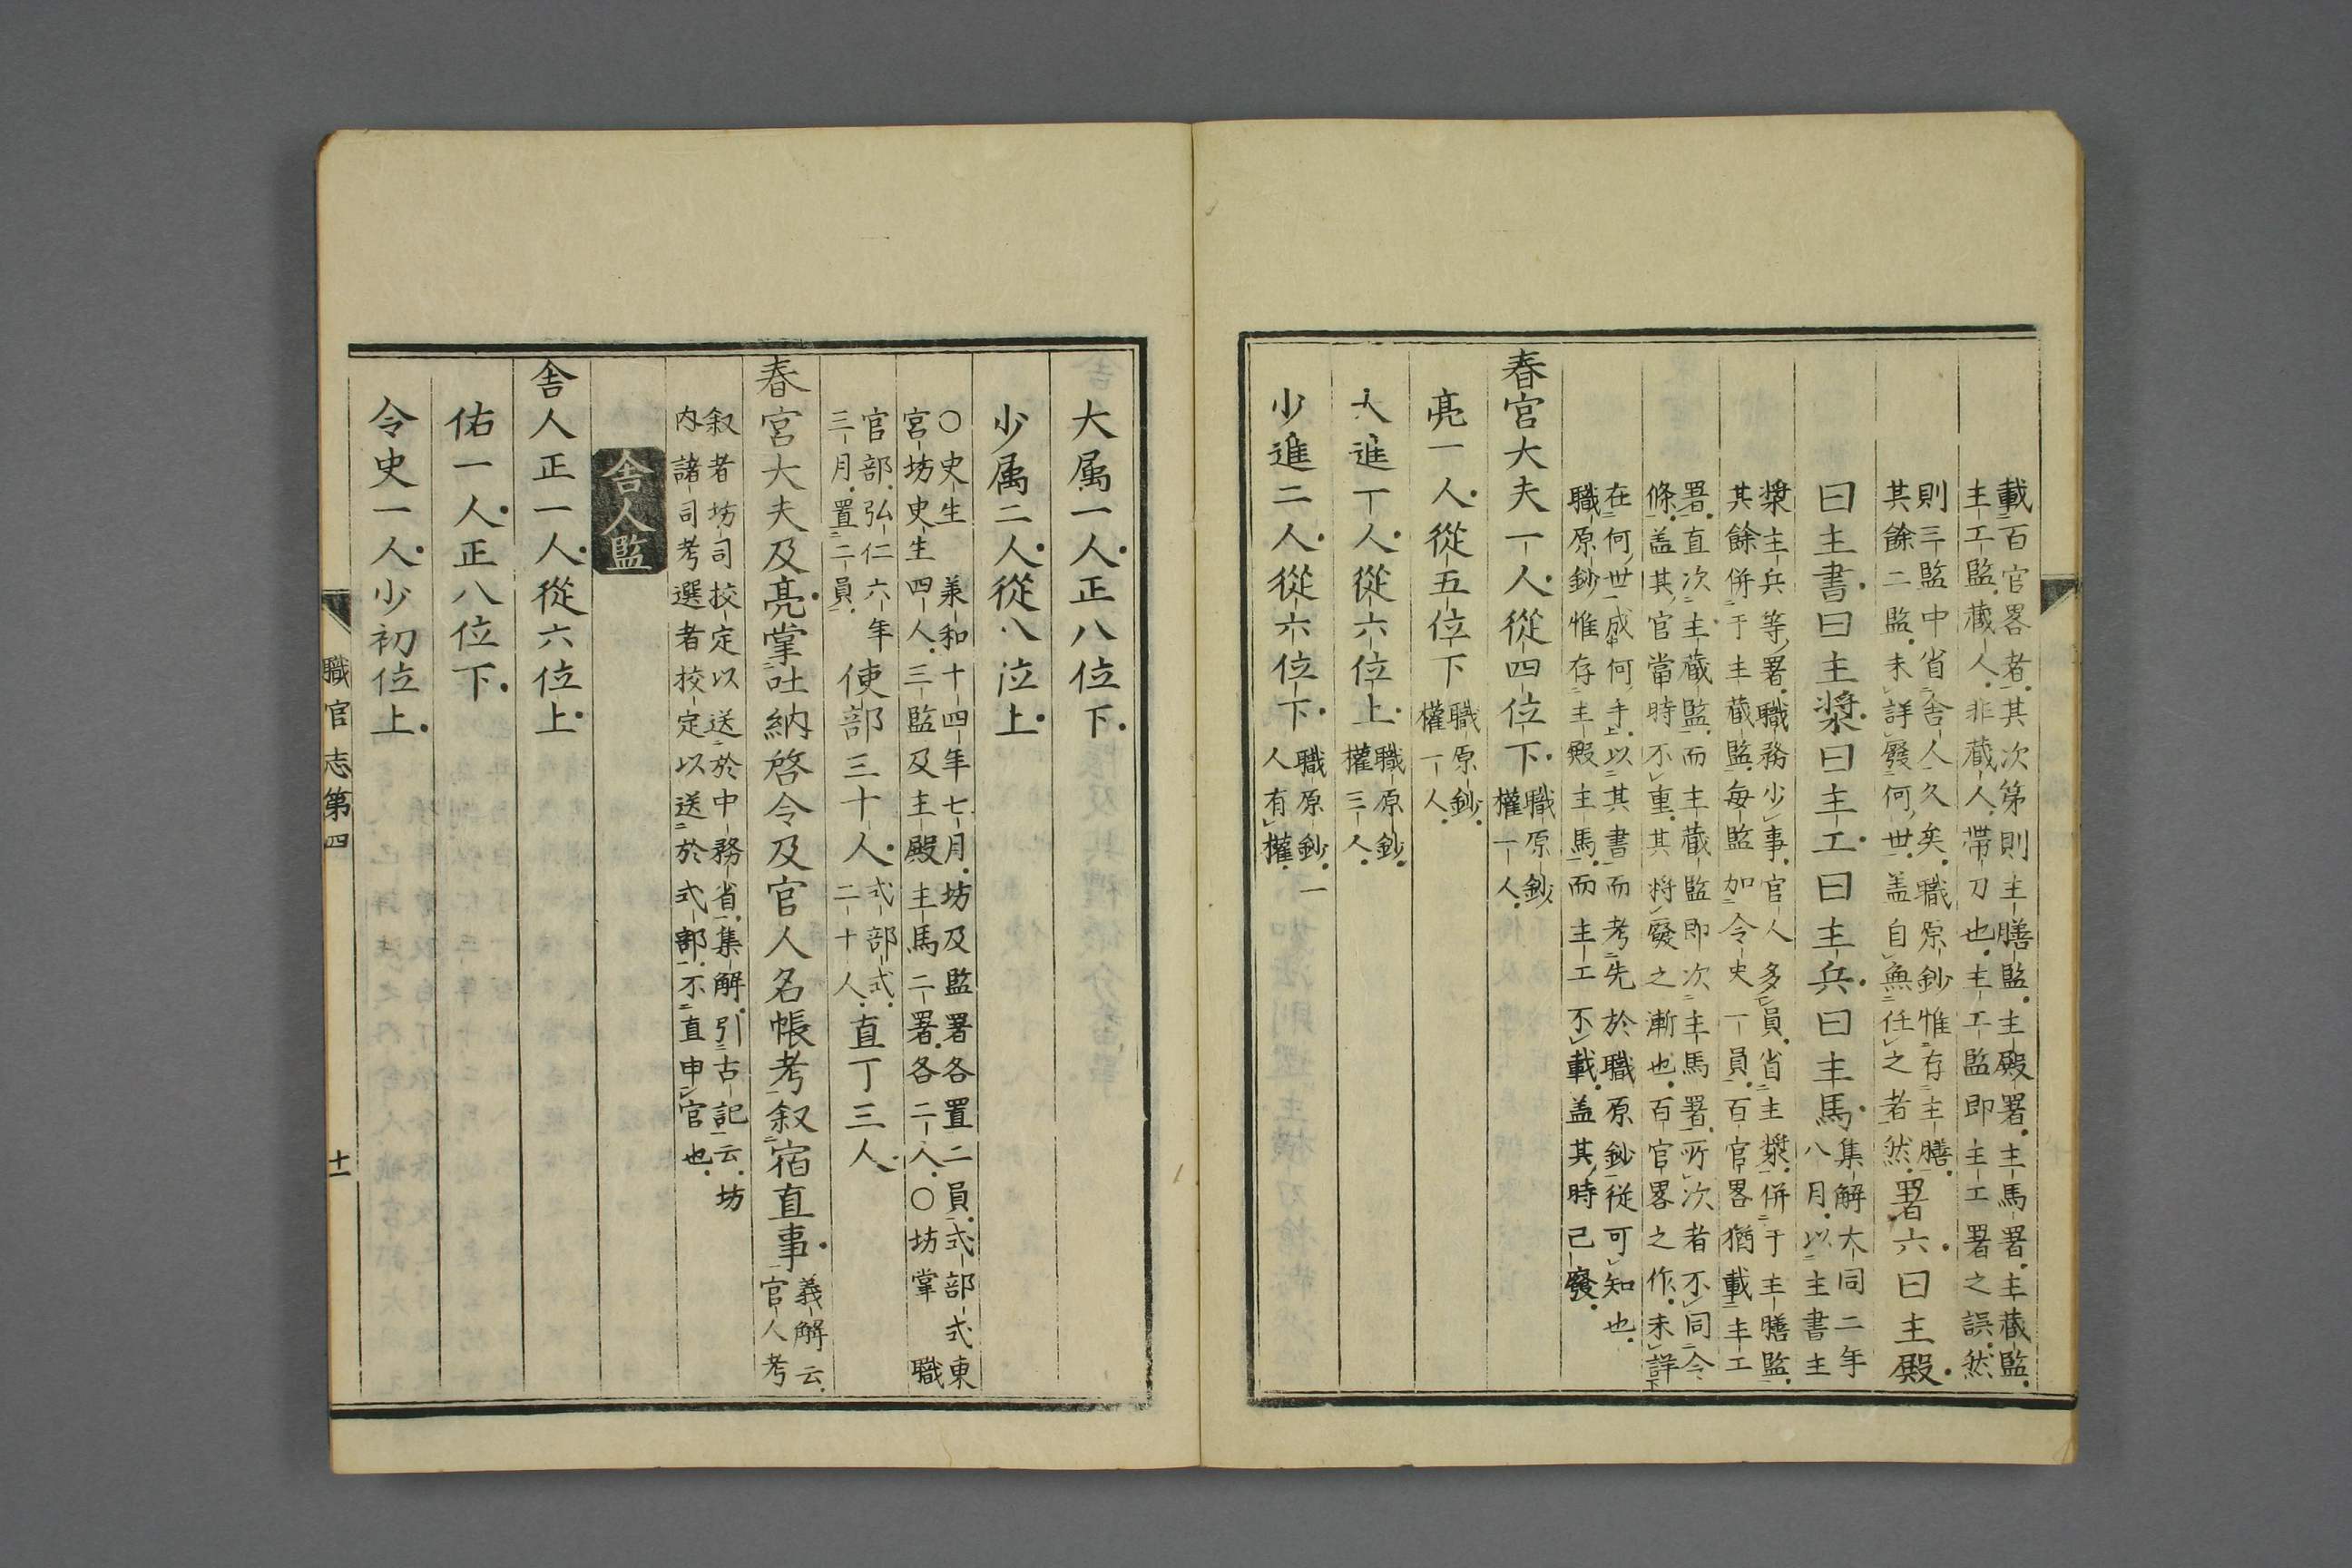 載百官畧者其次第則主膳監主殿署主馬署主蔵監
主工監蔵人非蔵人帶刀也主工監即主工署之誤然
則三監中省舎人久矣職原鈔惟存主膳
其餘二監未詳廢何世盖自無任之者然署六曰主殿
曰主書曰主漿曰主工曰主兵曰主馬集解大同二年
八月以主書主
漿主兵等署職務少事官人多員省主漿併于主膳監
其餘併于主蔵監毎監加令史一員百官畧猶載主工
署直次主蔵監而主蔵監即次主馬署所次者不同令
條盖其官當時不重其将廢之漸也百官畧之作未詳
在何世成何手以其書而考先於職原鈔従可知也
職原鈔惟存主殿主馬而主工不載盖其時已廢
春宮大夫一人從四位下職原鈔
權一人
亮一人從五位下職原鈔
權一人
大進一人從六位上職原鈔
權三人
少進二人從六位下職原鈔一
人有權
大属一人正八位下
少属二人從八位上
○史生 兼和十四年七月坊及監署各置二員式部式東
宮坊史生四人三監及主殿主馬二署各二人○坊掌 職
官部弘仁六年
三月置二員使部三十人式部式
二十人直丁三人
春宮大夫及亮掌吐納啓令及官人名帳考叙宿直事義解云
官人考
叙者坊司挍定以送於中務省集解引古記云坊
内諸司考選者挍定以送於式部不直申官也
舎人監
舎人正一人從六位上
佑一人正八位下
令史一人少初位上
職官志第四
十一